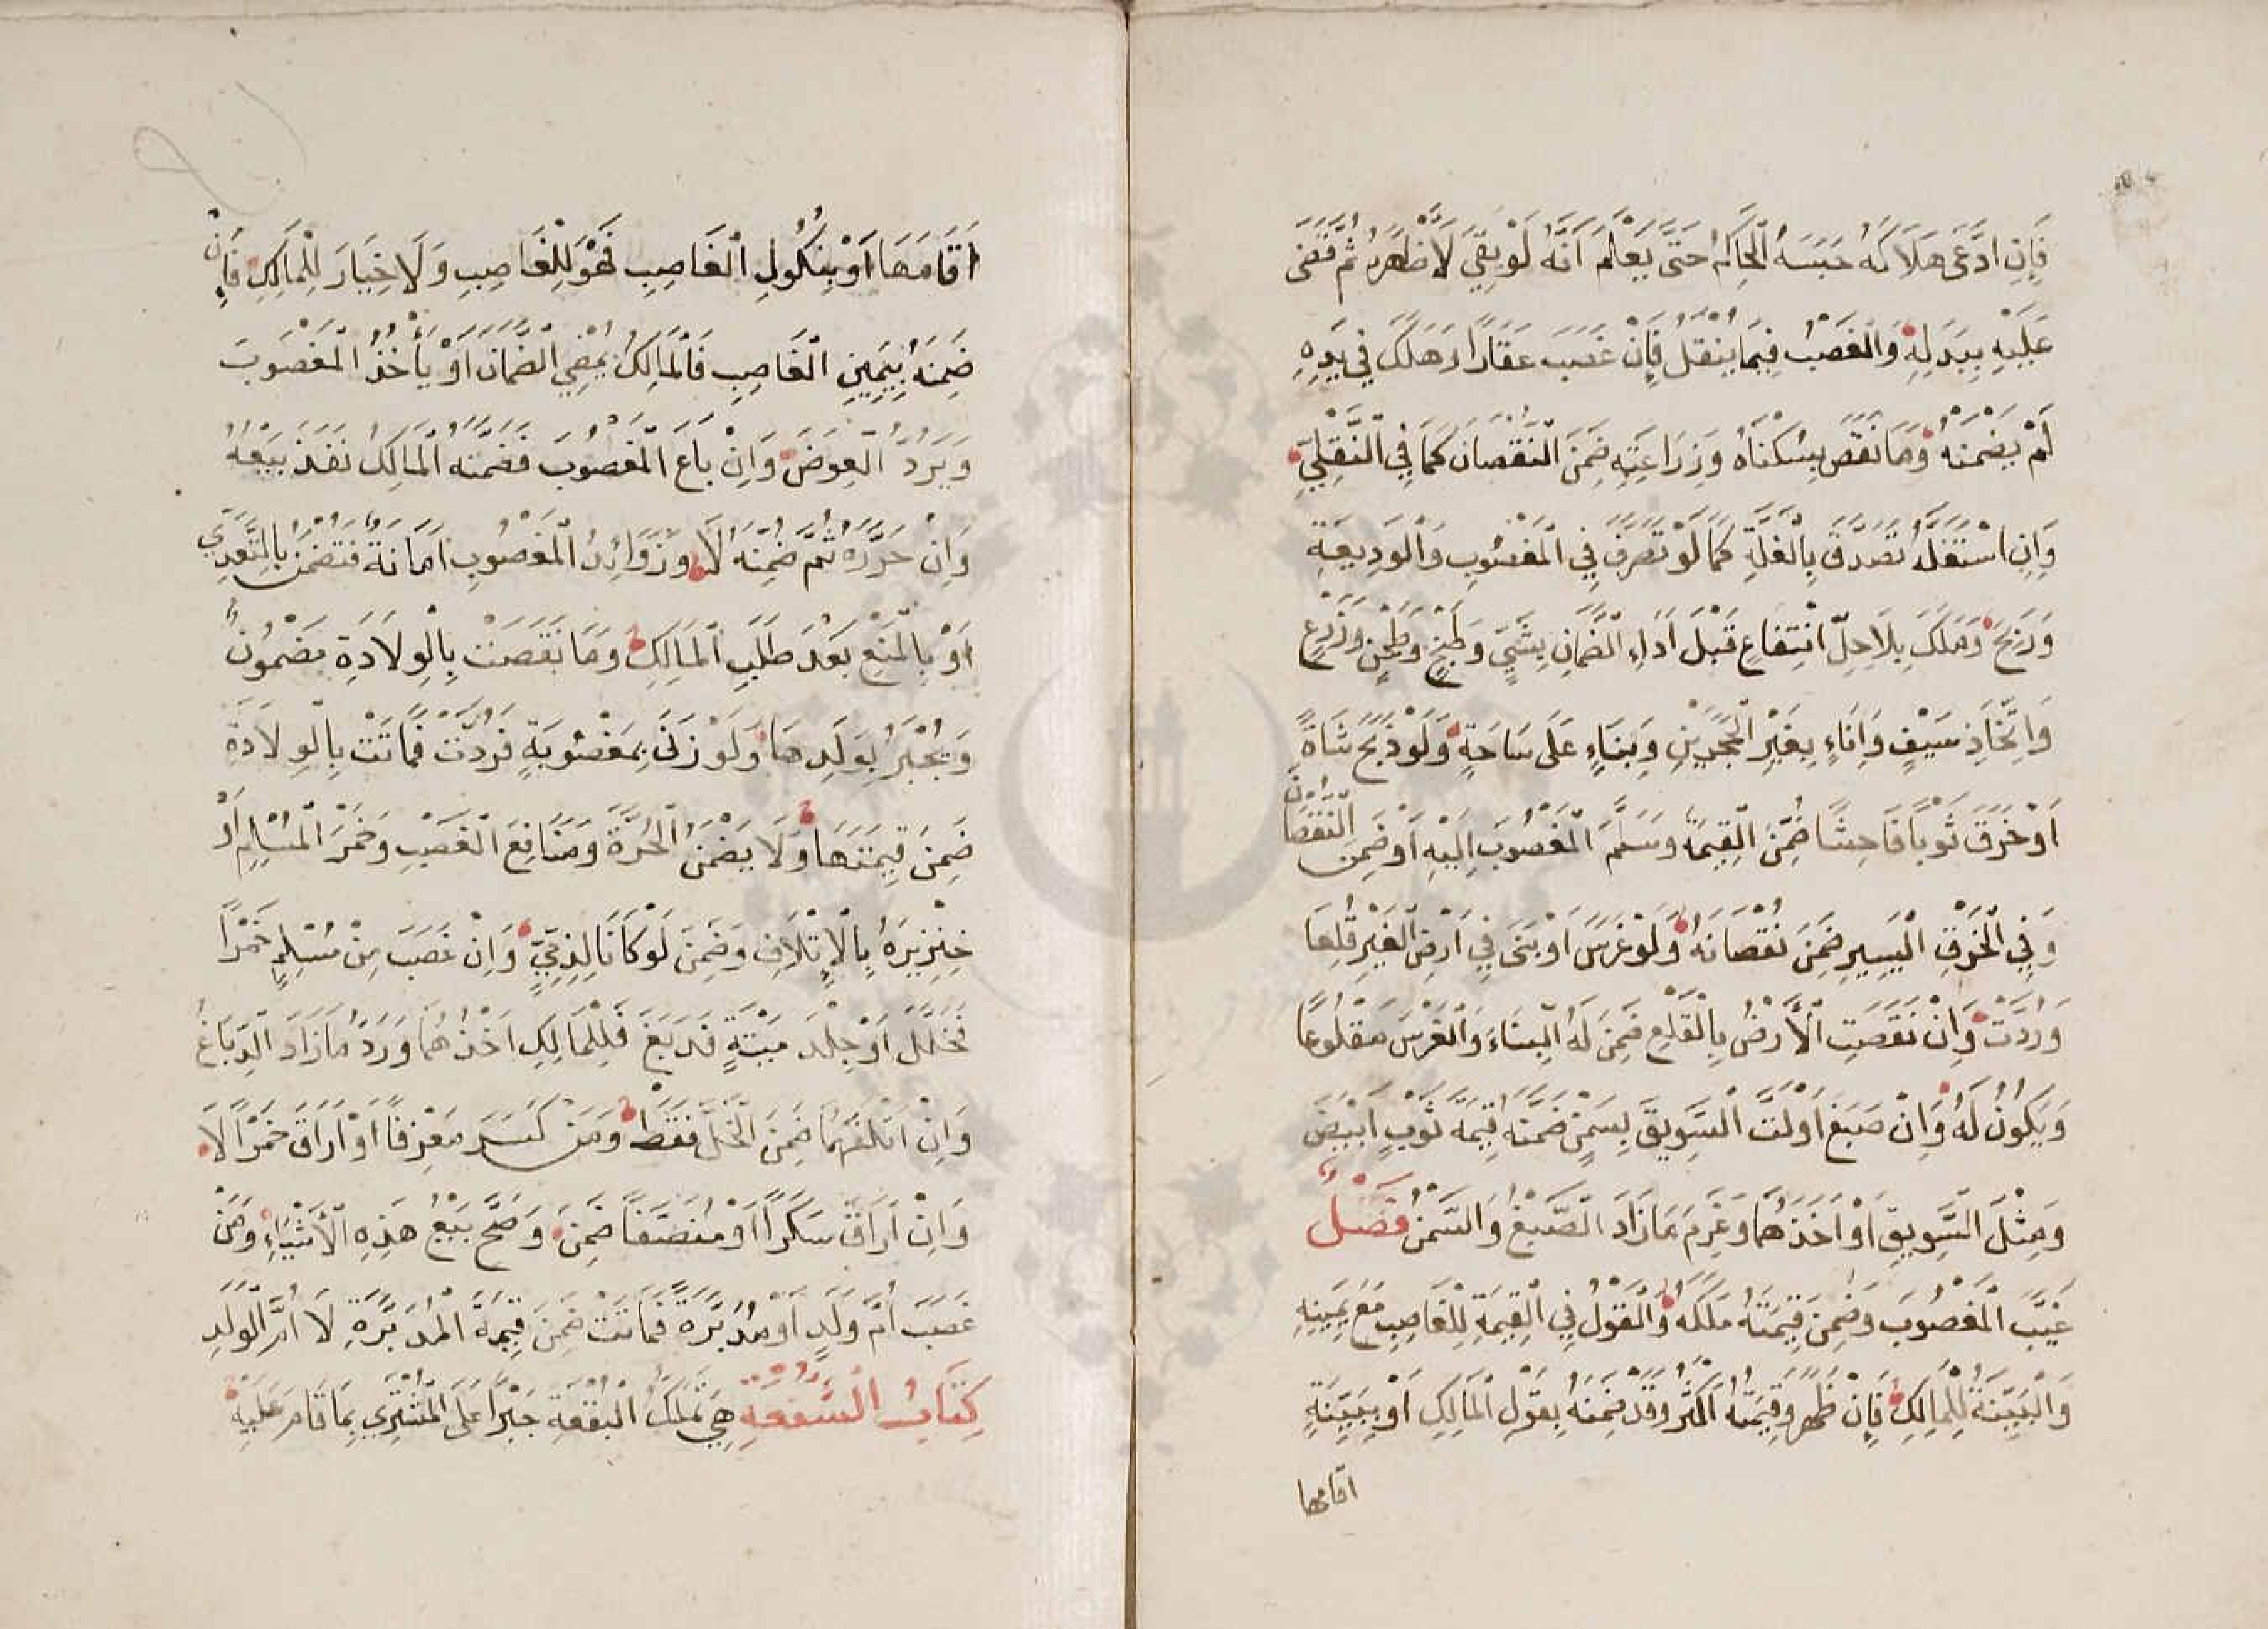 فَإِنِ ادَّعَى هَلَاكَهُ حَبَسَهُ الْحَاكِمُ حَتَّى يَعْلَمَ أَنَّهُ لَوْ بَقِيَ لَأَظْهَرَهُ ثُمَّ قَضَى
عَلَيْهِ بِبَدَلِهِ وَالْغَصْبُ فِيمَا يُنْقَلُ فَإِنْ غَصَبَ عَقَارًا وَهَلَكَ فِي يَدِهِ
لَمْ يَضْمَنْهُ وَمَا نَقَصَ بِسُكْنَاهُ وَزِرَاعَتِهِ ضَمِنَ النُّقْصَانَ كَمَا فِي النَّقْلِيِّ
وَإِنِ اسْتَغَلَّهُ تَصَدَّقَ بِالْغَلَّةِ كَمَا لَوْ تَصَرَّفَ فِي الْمَغْصُوبِ وَالْوَدِيعَةِ
وَرَبِحَ وَمَلَكَ بِلَا حِلِّ انْتِفَاعٍ قَبْلَ أَدَاءِ الضَّمَانِ بِشَيٍّ وَطَبْخٍ وَطَحْنٍ وَزَرْعٍ
وَاتِّخَاذِ سَيْفٍ وَإِنَاءٍ بِغَيْرِ الْحَجَرَيْنِ وَبِنَاءٍ عَلَى سَاحَةٍ وَلَوْ ذَبَحَ شَاةً
أَوْ خَرَقَ ثَوْبًا فَاحِشًا ضُمِّنَ الْقِيمَةَ وَسَلَّمَ الْمَغْصُوبَ إِلَيْهِ أَوْ ضَمِنَ النُّقْصَانَ
وَفِي الْخَرْقِ الْيَسِيرِ ضَمِنَ نُقْصَانَهُ وَلَوْ غَرَسَ أَوْ بَنَى فِي أَرْضِ الْغَيْرِ قُلِعَا
وَرُدَّتْ وَإِنْ نَقَصَتِ الْأَرْضُ بِالْقَلْعِ ضَمِنَ لَهُ الْبِنَاءَ وَالْغَرْسَ مَقْلُوعًا
وَيَكُونُ لَهُ وَإِنْ صَبَغَ أَوْ لَتَّ السَّوِيقَ بِسَمْنٍ ضَمَّنَهُ قِيمَةَ ثَوْبٍ أَبْيَضَ
وَمِثْلَ السَّوِيقِ أَوْ أَخَذَهُمَا وَغَرِمَ مَا زَادَ الصَّبْغُ وَالسَّمْنُ فَصْلٌ
غَيَّبَ الْمَغْصُوبَ وَضَمِنَ قِيمَتَهُ مَلَكَهُ وَالْقَوْلُ فِي الْقِيمَةِ لِلْغَاصِبِ مَعَ يَمِينِهِ
وَالْبَيِّنَةُ لِلْمَالِكِ فَإِنْ ظَهَرَ وَقِيمَتُهُ أَكْثَرُ وَقَدْ ضَمِنَهُ بِقَوْلِ الْمَالِكِ أَوْ بِبَيِّنَةٍ
اقامها
أَقَامَهَا أَوْ بِنُكُولِ الْغَاصِبِ فَهُوَ لِلْغَاصِبِ وَلَا خِيَارَ لِلْمَالِكِ فَإِنْ
ضَمِنَهُ بِيَمِينِ الْغَاصِبِ فَالْمَالِكُ يُمْضِي الضَّمَانَ أَوْ يَأْخُذُ الْمَغْصُوبَ
وَيَرُدُّ الْعِوَضَ وَإِنْ بَاعَ الْمَغْصُوبَ فَضَمَّنَهُ الْمَالِكُ نَفَذَ بَيْعُهُ
وَإِنْ حَرَّرَهُ ثُمَّ ضَمِنَهُ لَا وَزَوَائِدُ الْمَغْصُوبِ أَمَانَةٌ فَتُضْمَنُ بِالتَّعَدِّي
أَوْ بِالْمَنْعِ بَعْدَ طَلَبِ الْمَالِكِ وَمَا نَقَصَتْ بِالْوِلَادَةِ مَضْمُونٌ
وَيُجْبَرُ بِوَلَدِهَا وَلَوْ زَنَى بِمَغْصُوبَةٍ فَرُدَّتْ فَمَاتَتْ بِالْوِلَادَةِ
ضَمِنَ قِيمَتَهَا وَلَا يَضْمَنُ الْحُرَّةَ وَمَنَافِعَ الْغَصْبِ وَخَمْرَ الْمُسْلِمِ أَوْ
خِنْزِيرَهُ بِالْإِتْلَافِ وَضَمِنَ لَوْ كَانَا لِذِمِّيٍّ وَإِنْ غَصَبَ مِنْ مُسْلِمٍ خَمْرًا
فَخَلَّلَ أَوْ جِلْدَ مَيْتَةٍ فَدَبَغَ فَلِلْمَالِكِ أَخْذُهُمَا وَرَدُّ مَا زَادَ الدِّبَاغُ
وَإِنْ أَتْلَفَهُمَا ضَمِنَ الْخَلَّ فَقَطْ وَمَنْ كَسَرَ مِعْزَفًا أَوْ أَرَاقَ خَمْرًا لَا
وَإِنْ أَرَاقَ سَكَرًا أَوْ مُنَصَّفًا ضَمِنَ وَصَحَّ بَيْعُ هَذِهِ الْأَشْيَاءِ وَمَنْ
غَصَبَ أُمَّ وَلَدٍ أَوْ مُدَبَّرَةً فَمَاتَتْ ضَمِنَ قِيمَةَ الْمُدَبَّرَةِ لَا أُمِّ الْوَلَدِ
كِتَابُ الشُّفْعَةِ هِيَ تَمَلُّكُ الْبُقْعَةِ جَبْرًا عَلَى الْمُشْتَرِي بِمَا قَامَ عَلَيْهِ